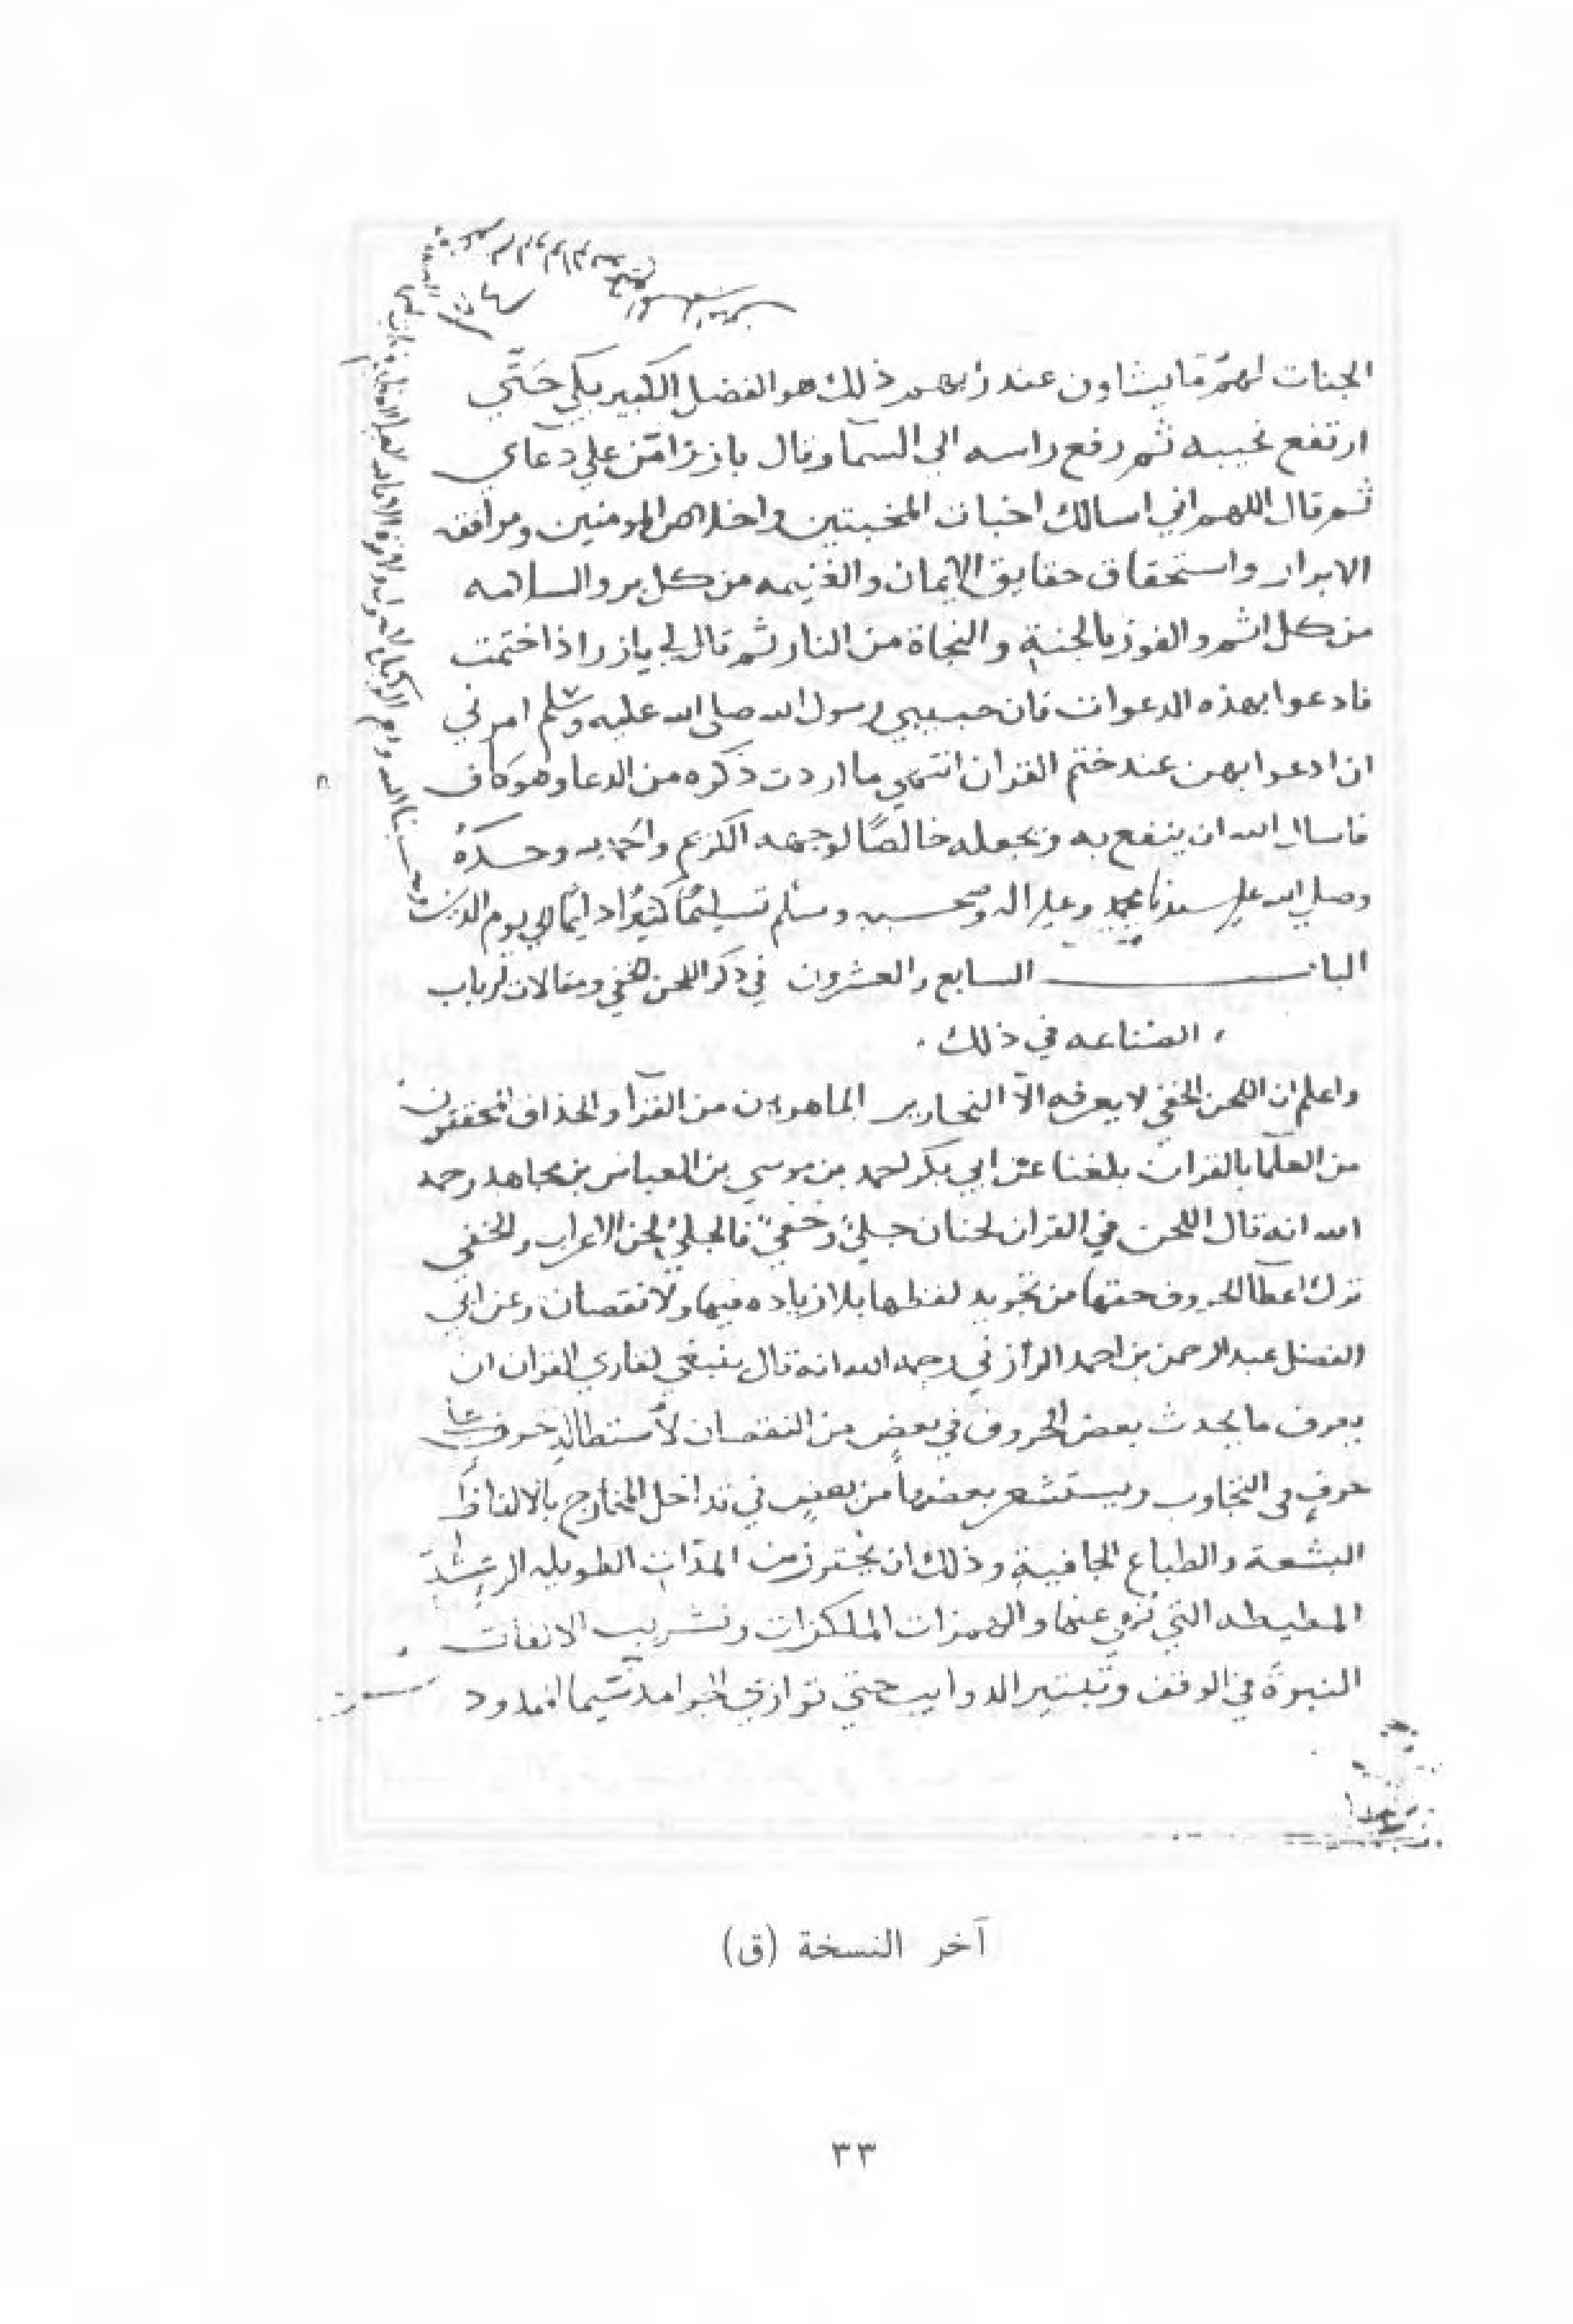 الجنات لهم ما يشاون عند ربهم ذلك هو الفضل الكبير بكي حَتَّي
ارتفع نحيبه ثم رفع راسه الي السمآ وقال يا زر امّن علي دعاي
ثم قال اللهم اني اسالك اخبات المخبتين واخلاص المومنين ومرافقه
الابرار واستحقاق حقايق الايمان والغنيمه من كل بر والسلامه
من كل اثم والفوز بالجنة والنجاة من النار ثم قال لي يا زر اذا ختمت
فادعوا بهذه الدعوات فان حبيبي رسول الله صلي الله عليه وسلم امرني
ان ادعوا بهن عند ختم القران انتهي ما اردت ذكره من الدعا وهو كاف
فاسال الله ان ينفع به ويجعله خالصًا لوجهه الكريم والحمد لله وحده
وصلي الله علي سيدنا محمد وعلي اله وصحبه وسلم تسليمًا كثيرًا دايمًا الي يوم الدين
الباب السابع والعشرون في ذكر اللحن الخفي ومقالات ارباب
الصناعه في ذلك .
واعلم ان اللحن الخفي لا يعرفه الّا النحارير الماهرون من القرآ والحذاق المحققون
من العلمآ بالقران بلغنا عن ابي بكر احمد بن موسي بن العباس بن مجاهد رحمه
الله انه قال اللحن في القران لحنان جليٌ وخفيٌ فالجليُ لحن الاعراب والخفي
ترك اعطآ الحروف حقها من تجويد لفظها بلا زياده فيها ولا نقصان وعن ابي
الفضل عبد الرحمن بن احمد الرازي رحمه الله انه قال ينبغي لقاري القران ان
يعرف ما يحدث بعض الحروف في بعض من النقصان لاستطالة حرف علي
حرف في التجاوب ويستشعر بعضها من بعض في تداخل المخارج بالالفاظ
البشعة والطباع الجافية وذلك ان يحترز من المدّات الطويله
المطيطه التي نهي عنها والهمزات الملكزات وتشريب الانفات
النبرة في الوقف حتي توازي الجوامد سيما الممدود
آخر النسخة (ق)
٣٣